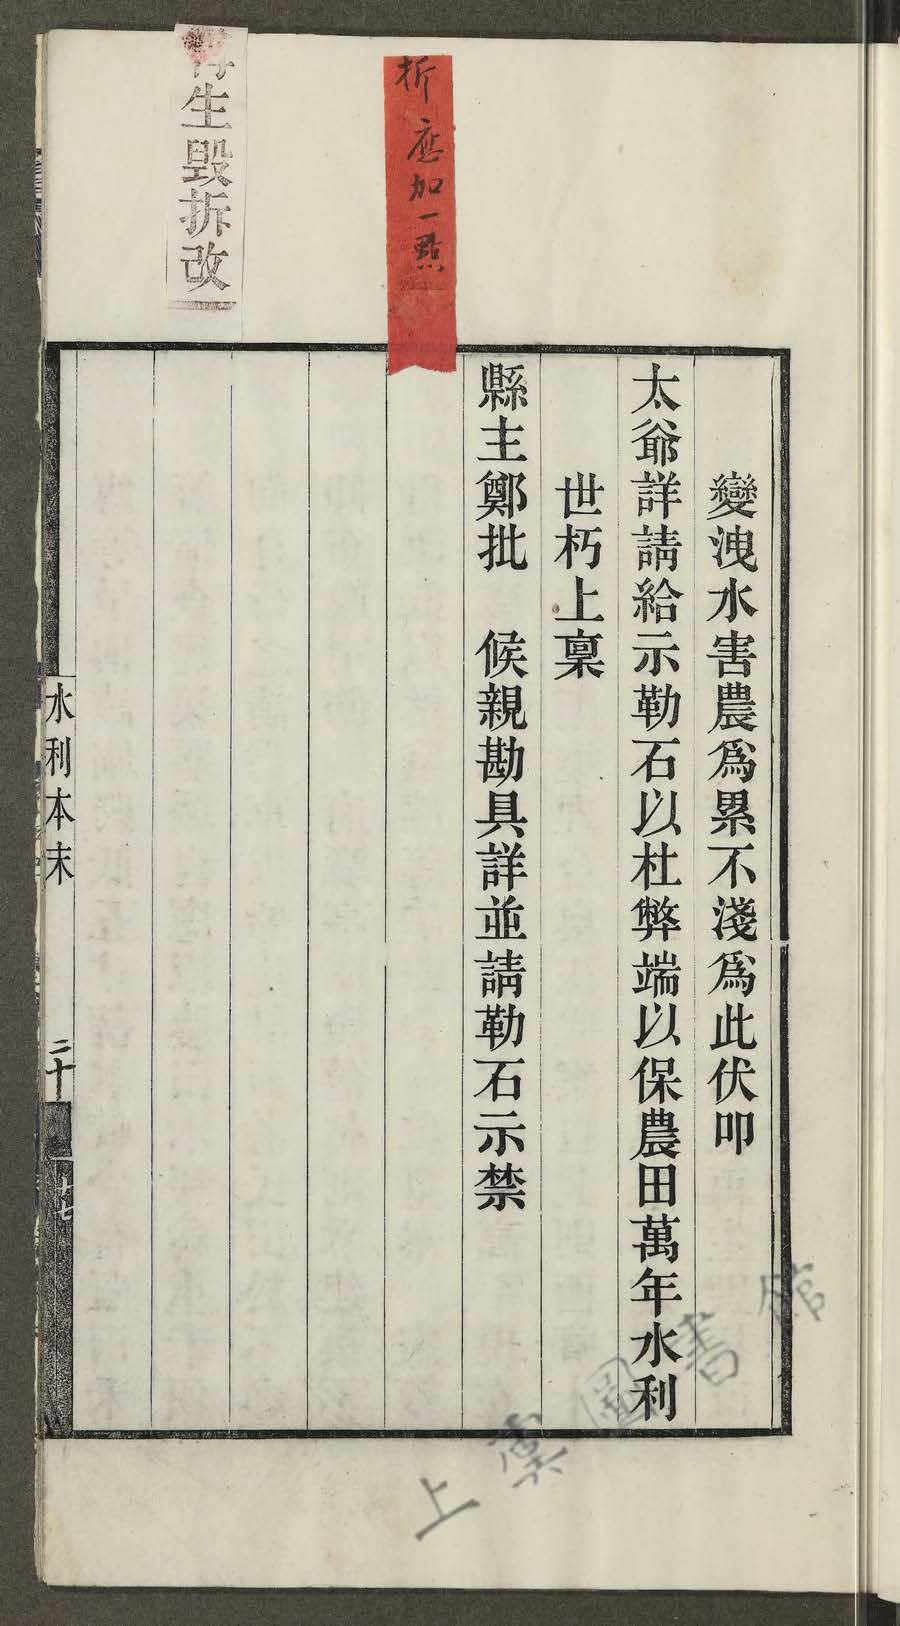 變洩水害農爲累不淺爲此伏叩
太爺詳請給示勒石以杜弊端以保農田萬年水利
世朽上稟
縣主鄭批　候親勘具詳並請勒石示禁
折應加一點
生毀拆改
水利本末
二十
上虞圖書館